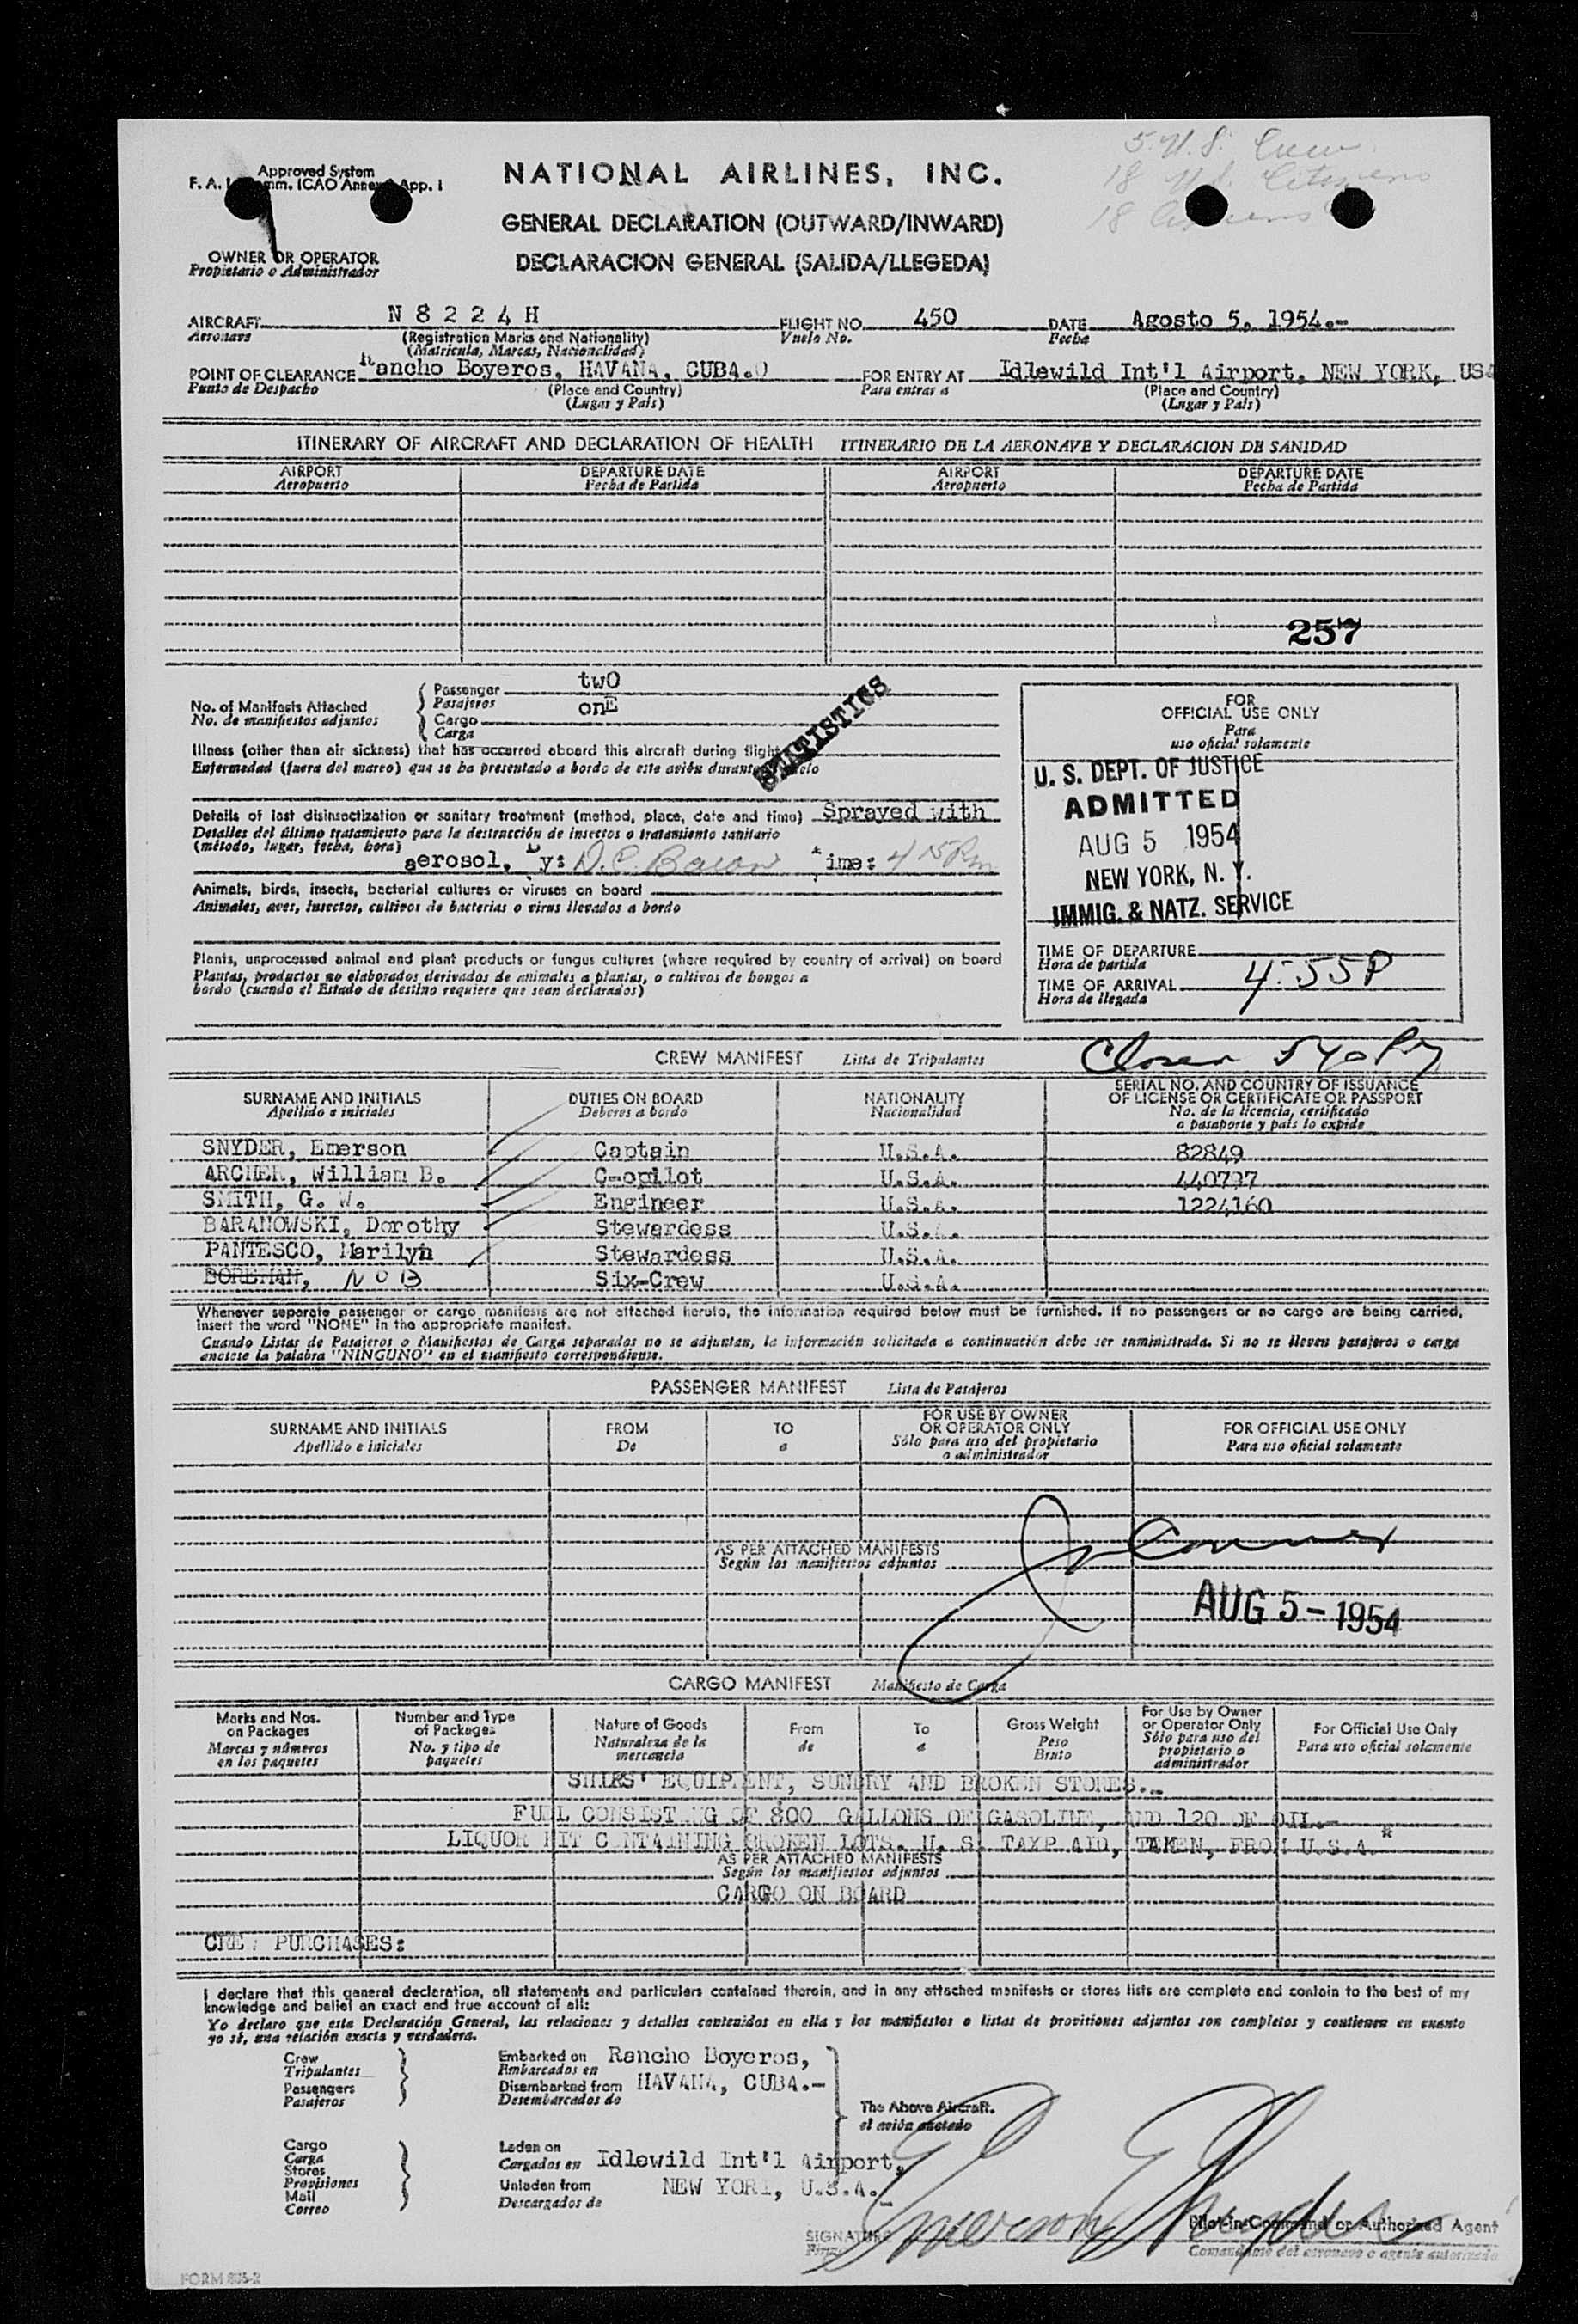 5 U.S. Crew
18 U.S. Citizens
18
Approved System
NATIONAL AIRLINES, INC.
GENERAL DECLARATION (OUTWARD/INWARD)
DECLARACION GENERAL (SALIDA/LLEGEDA)
OWNER OR OPERATOR
Propietario o Administrador
AIRCRAFT N 8 2 2 4 H FLIGHT NO. 450 DATE Agosto 5, 1954.-
Aeronave (Registration Marks and Nationality) Vuelo No. Fecha
(Matricula, Marcas, Nacionalidad)
POINT OF CLEARANCE Rancho Boyeros, HAVANA, CUBA. FOR ENTRY AT Idlewild Int'l Airport, NEW YORK, USA
Punto de Despacho (Place and Country) Para entrar a (Place and Country)
(Lugar y País) (Lugar y País)
ITINERARY OF AIRCRAFT AND DECLARATION OF HEALTH ITINERARIO DE LA AERONAVE Y DECLARACION DE SANIDAD
AIRPORT DEPARTURE DATE AIRPORT DEPARTURE DATE
Aeropuerto Fecha de Partida Aeropuerto Fecha de Partida
257
No. of Manifests Attached Passenger twO
No. de manifiestos adjuntos Pasajeros
Cargo onE
Carga
STATISTICS
Illness (other than air sickness) that has occurred aboard this aircraft during flight
Enfermedad (fuera del mareo) que se ha presentado a bordo de este avión durante
Details of last disinsectization or sanitary treatment (method, place, date and time) Sprayed with
Detalles del último tratamiento para la destrucción de insectos o tratamiento sanitario
(método, lugar, fecha, hora) aerosol, By: Time: 4 15 Pm
Animals, birds, insects, bacterial cultures or viruses on board
Animales, aves, insectos, cultivos de bacterias o virus llevados a bordo
Plants, unprocessed animal and plant products or fungus cultures (where required by country of arrival) on board
Plantas, productos no elaborados derivados de animales a plantas, o cultivos de hongos a
bordo (cuando el Estado de destino requiere que sean declarados)
FOR
OFFICIAL USE ONLY
Para
uso oficial solamente
U. S. DEPT. OF JUSTICE
ADMITTED
AUG 5 1954
NEW YORK, N. Y.
IMMIG. & NATZ. SERVICE
TIME OF DEPARTURE
Hora de partida
TIME OF ARRIVAL 4:55P
Hora de llegada
CREW MANIFEST Lista de Tripulantes
SURNAME AND INITIALS DUTIES ON BOARD NATIONALITY SERIAL NO. AND COUNTRY OF ISSUANCE
OF LICENSE OR CERTIFICATE OR PASSPORT
Apellido e iniciales Deberes a bordo Nacionalidad No. de la licencia, certificado
o pasaporte y país lo expide
SNYDER, Emerson Captain U.S.A. 82849
ARCHER, William B. C-opilot U.S.A. 440797
SMITH, G. W. Engineer U.S.A. 1224160
BARANOWSKI, Dorothy Stewardess U.S.A.
PANTESCO, Marilyn Stewardess U.S.A.
BOREMAN, NOB Six-Crew U.S.A.
Whenever separate passenger or cargo manifests are not attached hereto, the information required below must be furnished. If no passengers or no cargo are being carried,
insert the word "NONE" in the appropriate manifest.
Cuando Listas de Pasajeros o Manifiestos de Carga separados no se adjuntan, la información solicitada a continuación debe ser suministrada. Si no se lleven pasajeros o carga
anotese la palabra "NINGUNO" en el manifiesto correspondiente.
PASSENGER MANIFEST Lista de Pasajeros
SURNAME AND INITIALS FROM TO FOR USE BY OWNER OR OPERATOR ONLY FOR OFFICIAL USE ONLY
Apellido e iniciales De a Sólo para uso del propietario o administrador Para uso oficial solamente
AS PER ATTACHED MANIFESTS
Según los manifiestos adjuntos
AUG 5 - 1954
CARGO MANIFEST Manifiesto de Carga
Marks and Nos. on Packages Number and Type of Packages Nature of Goods From To Gross Weight For Use by Owner or Operator Only For Official Use Only
Marcas y números en los paquetes No. y tipo de paquetes Naturaleza de la mercancia de a Peso Bruto Sólo para uso del propietario o administrador Para uso oficial solamente
SHIPS' EQUIPMENT, SUNDRY AND BROKEN STORES.-
FUEL CONSISTING OF 800 GALLONS OF GASOLINE, AND 120 OF OIL.-
LIQUOR KIT CONTAINING BROKEN LOTS, U. S. TAXP AID, TAKEN, FROM U.S.A.*
AS PER ATTACHED MANIFESTS
Según los manifiestos adjuntos
CARGO ON BOARD
CREW PURCHASES:
I declare that this general declaration, all statements and particulars contained therein, and in any attached manifests or stores lists are complete and contain to the best of my
knowledge and belief an exact and true account of all:
Yo declaro que esta Declaración General, las relaciones y detalles contenidos en ella y los manifiestos o listas de provisiones adjuntos son completos y contienen en cuanto
yo sé, una relación exacta y verdadera.
Crew Embarked on Rancho Boyeros,
Tripulantes Embarcados en
Passengers Disembarked from HAVANA, CUBA.-
Pasajeros Desembarcados de
The Above Aircraft.
el avión anotado
Cargo Laden on
Carga Cargados en Idlewild Int'l Airport,
Stores
Provisiones Unladen from NEW YORK, U.S.A.-
Mail Descargados de
Correo
SIGNATURE Emerson Snyder
Firma
Pilot-in-Command or Authorized Agent
Comandante del aeronave o agente autorizado
FORM 835-2